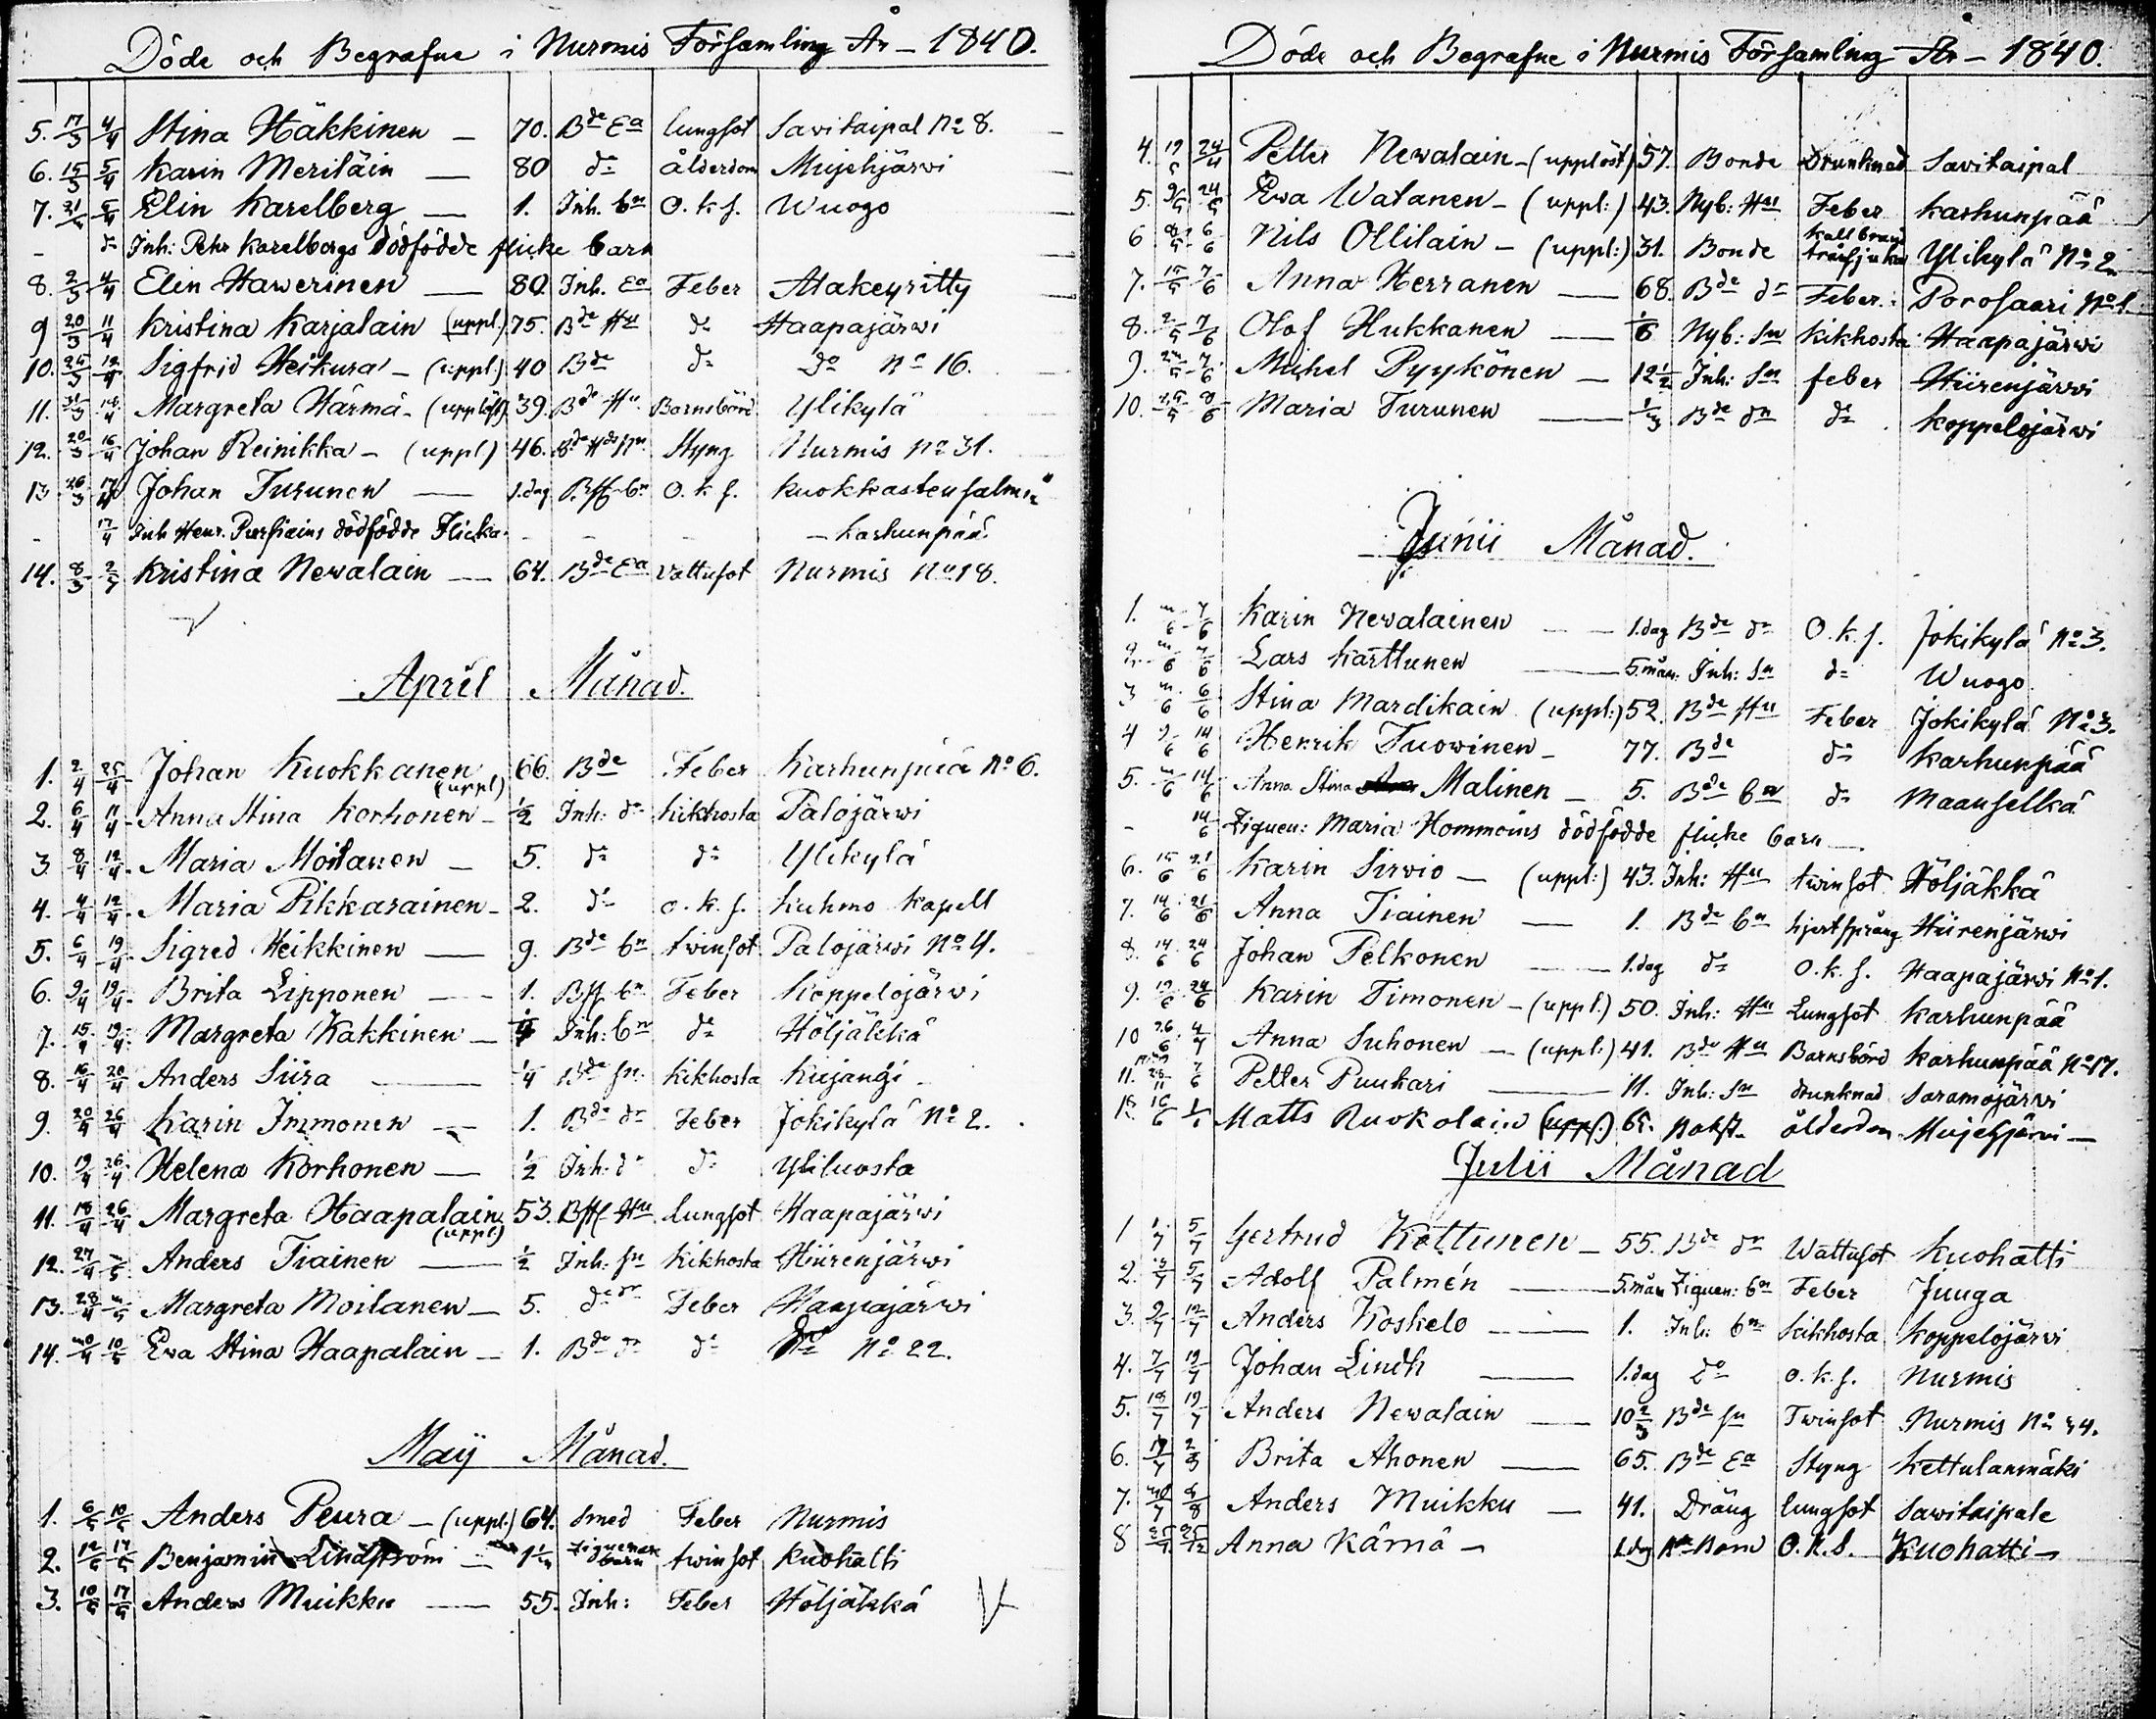 Döde och Begrafne i Nurmis Församling År – 1840.
5. 17/3 4/4 Stina Häkkinen — 70. Bde Ea lungsot Savitaipal No 8.
6. 15/3 5/4 Karin Meriläin — 80 do ålderdom Mujehjärwi
7. Elin Karelberg — 1. Inh. bn O. k. s. Wuogo
- do Inh: Pehr Karelbergs dödfödde flicke barn
8. 2/3 4/4 Elin Hawerinen — 80. Inh. Ea Feber Alakeyritty
9 20/3 11/4 Kristina Karjalain (uppl.) 75. Bde Hu do Haapajärwi
10. 25/3 12/4 Sigfrid Heikura – (uppl.) 40 Bde do do No 16.
11. 31/3 Margreta Härmä – (upplöst) 39. Bde Hu Barnsbörd Ylikylä
12. 20/3 16/4 Johan Reinikka – (uppl) 46. Styng Nurmis No 31.
13. 26/3 17/4 Johan Turunen — 1.dag O. k. s. Kuokkastensalmi
- 17/4 Inh Henr. Pursiains dödfödde Flicka - - - — Karhunpää
14. 8/3 Kristina Newalain — 64. Bde Ea vattusot Nurmis No 18.
April Månad.
1. 2/4 25/4 Johan Kuokkanen (uppl) 66. Bde Feber Karhunpää No 6.
2. 6/4 11/4 Anna Stina Korhonen – 1/2 Inh: do kikhosta Palojärwi
3. 8/4 12/4 Maria Moilanen — 5. do do Ylikylä
4. 4/4 12/4 Maria Pikkarainen – 2. do o. k. s. Kuhmo Kapell
5. 6/4 19/4 Sigred Heikkinen — 9. Bde bn twinsot Palojärwi No 4.
6. 9/4 19/4 Brita Lipponen — 1. bn Feber Koppelojärwi
7. 15/4 19/4 Margreta Kakkinen — Inh: bn do Höljäkkä
8. 16/4 20/4 Anders Siira — 1/4 Bde sn kikhosta Kujangi
9. 20/4 26/4 Karin Immonen — 1. Bde dr Feber Jokikylä No 2.
10. 19/4 26/4 Helena Korhonen — 1/2 Inh: do do Yliluosta
11. 18/4 26/4 Margreta Haapalain (uppl) 53. Hu lungsot Haapajärwi
12. 27/4 Anders Tiainen — 1/2 Inh: sn kikhosta Hiirenjärwi
13. 28/4 Margreta Moilanen — 5. do dr Feber Haapajärwi
14. 10/5 Ewa Stina Haapalain — 1. Bde dr do do No 22.
Maij Månad.
1. 6/5 10/5 Anders Peura – (uppl:) 64. Smed Feber Nurmis
2. 12/5 17/5 Benjamin Lindström — Ziguenare barn twinsot Kuohatti
3. 10/5 17/5 Anders Muikku — 55. Inh: Feber Höljäkkä
Döde och Begrafne i Nurmis Församling År – 1840.
4. Petter Newalain – (upplöst) 57. Bonde Drunknad Savitaipal
5. 9/5 24/5 Ewa Watanen – (uppl:) 43. Nyb: Hu Feber Karhunpää
6 6/6 Nils Ollilain – (uppl:) 31. Bonde Kallbrand Ylikylä No 2.
7. 15/5 7/6 Anna Herranen — 68. Bde dr Feber Porosaari No 1
8. 7/6 Olof Hukkanen — Nyb: Sn kikhosta Haapajärwi
9. 7/6 Michel Pyykönen — 12 1/2 Inh: Sn feber Hiirenjärwi
10. 25/5 Maria Turunen — 1/3 Bde dr do Koppelojärwi
Junii Månad.
1. 7/6 Karin Newalainen — 1.dag Bde dr O. k. s. Jokikylä No 3.
2. 7/6 Lars Karttunen — 5.mån. Inh: Sn do Wuogo
3 6/6 Stina Mardikain (uppl:) 52. Bde Hu Feber Jokikylä No 3.
4 9/6 14/6 Henrik Tuowinen – 77. Bde do Karhunpää
5. 14/6 Anna Stina Malinen — 5. Bde bn do Maanselkä
- 14/6 Ziguen: Maria Hommoins dödfödde flicke barn —
6. 15/6 21/6 Karin Sirvio — (uppl:) 43. Inh: Hu twinsot Höljäkkä
7. 14/6 21/6 Anna Tiainen — 1. Bde bn hjertsprång Hiirenjärwi
8. 14/6 24/6 Johan Pelkonen — 1.dag do O. k. s. Haapajärwi No 1.
9. 19/6 24/6 Karin Timonen – (uppl.) 50. Inh: Hu Lungsot Karhunpää
10 26/6 4/7 Anna Suhonen — (uppl:) 41. Bde Hu Barnsbörd Karhunpää No 17.
11. Petter Puukari — 11. Inh: Sn drunknad Saramojärwi
12. 16/6 Matts Ruokolain (uppl.) 65. ålderdom Mujehjärwi —
Julii Månad
1 1/7 5/7 Gertrud Kottunen – 55. Bde dr Wattusot Kuohatti
2. 3/7 5/7 Adolf Palmén — 5.mån Ziguen: bn Feber Juuga
3. 9/7 12/7 Anders Koskelo — 1. Inh: bn kikhosta Koppelojärwi
4. 7/7 19/7 Johan Lindh — 1.dag do o. k. s. Nurmis
5. 18/7 19/7 Anders Newalain — 10 2/3 Bde sn Twinsot Nurmis No 34.
6. Brita Ahonen — 65. Bde Ea Styng Kettulanmäki
7. Anders Muikku — 41. Dräng lungsot Sawitaipale
8 Anna Kärnä — 1.dag O. k. S. Kuohatti —